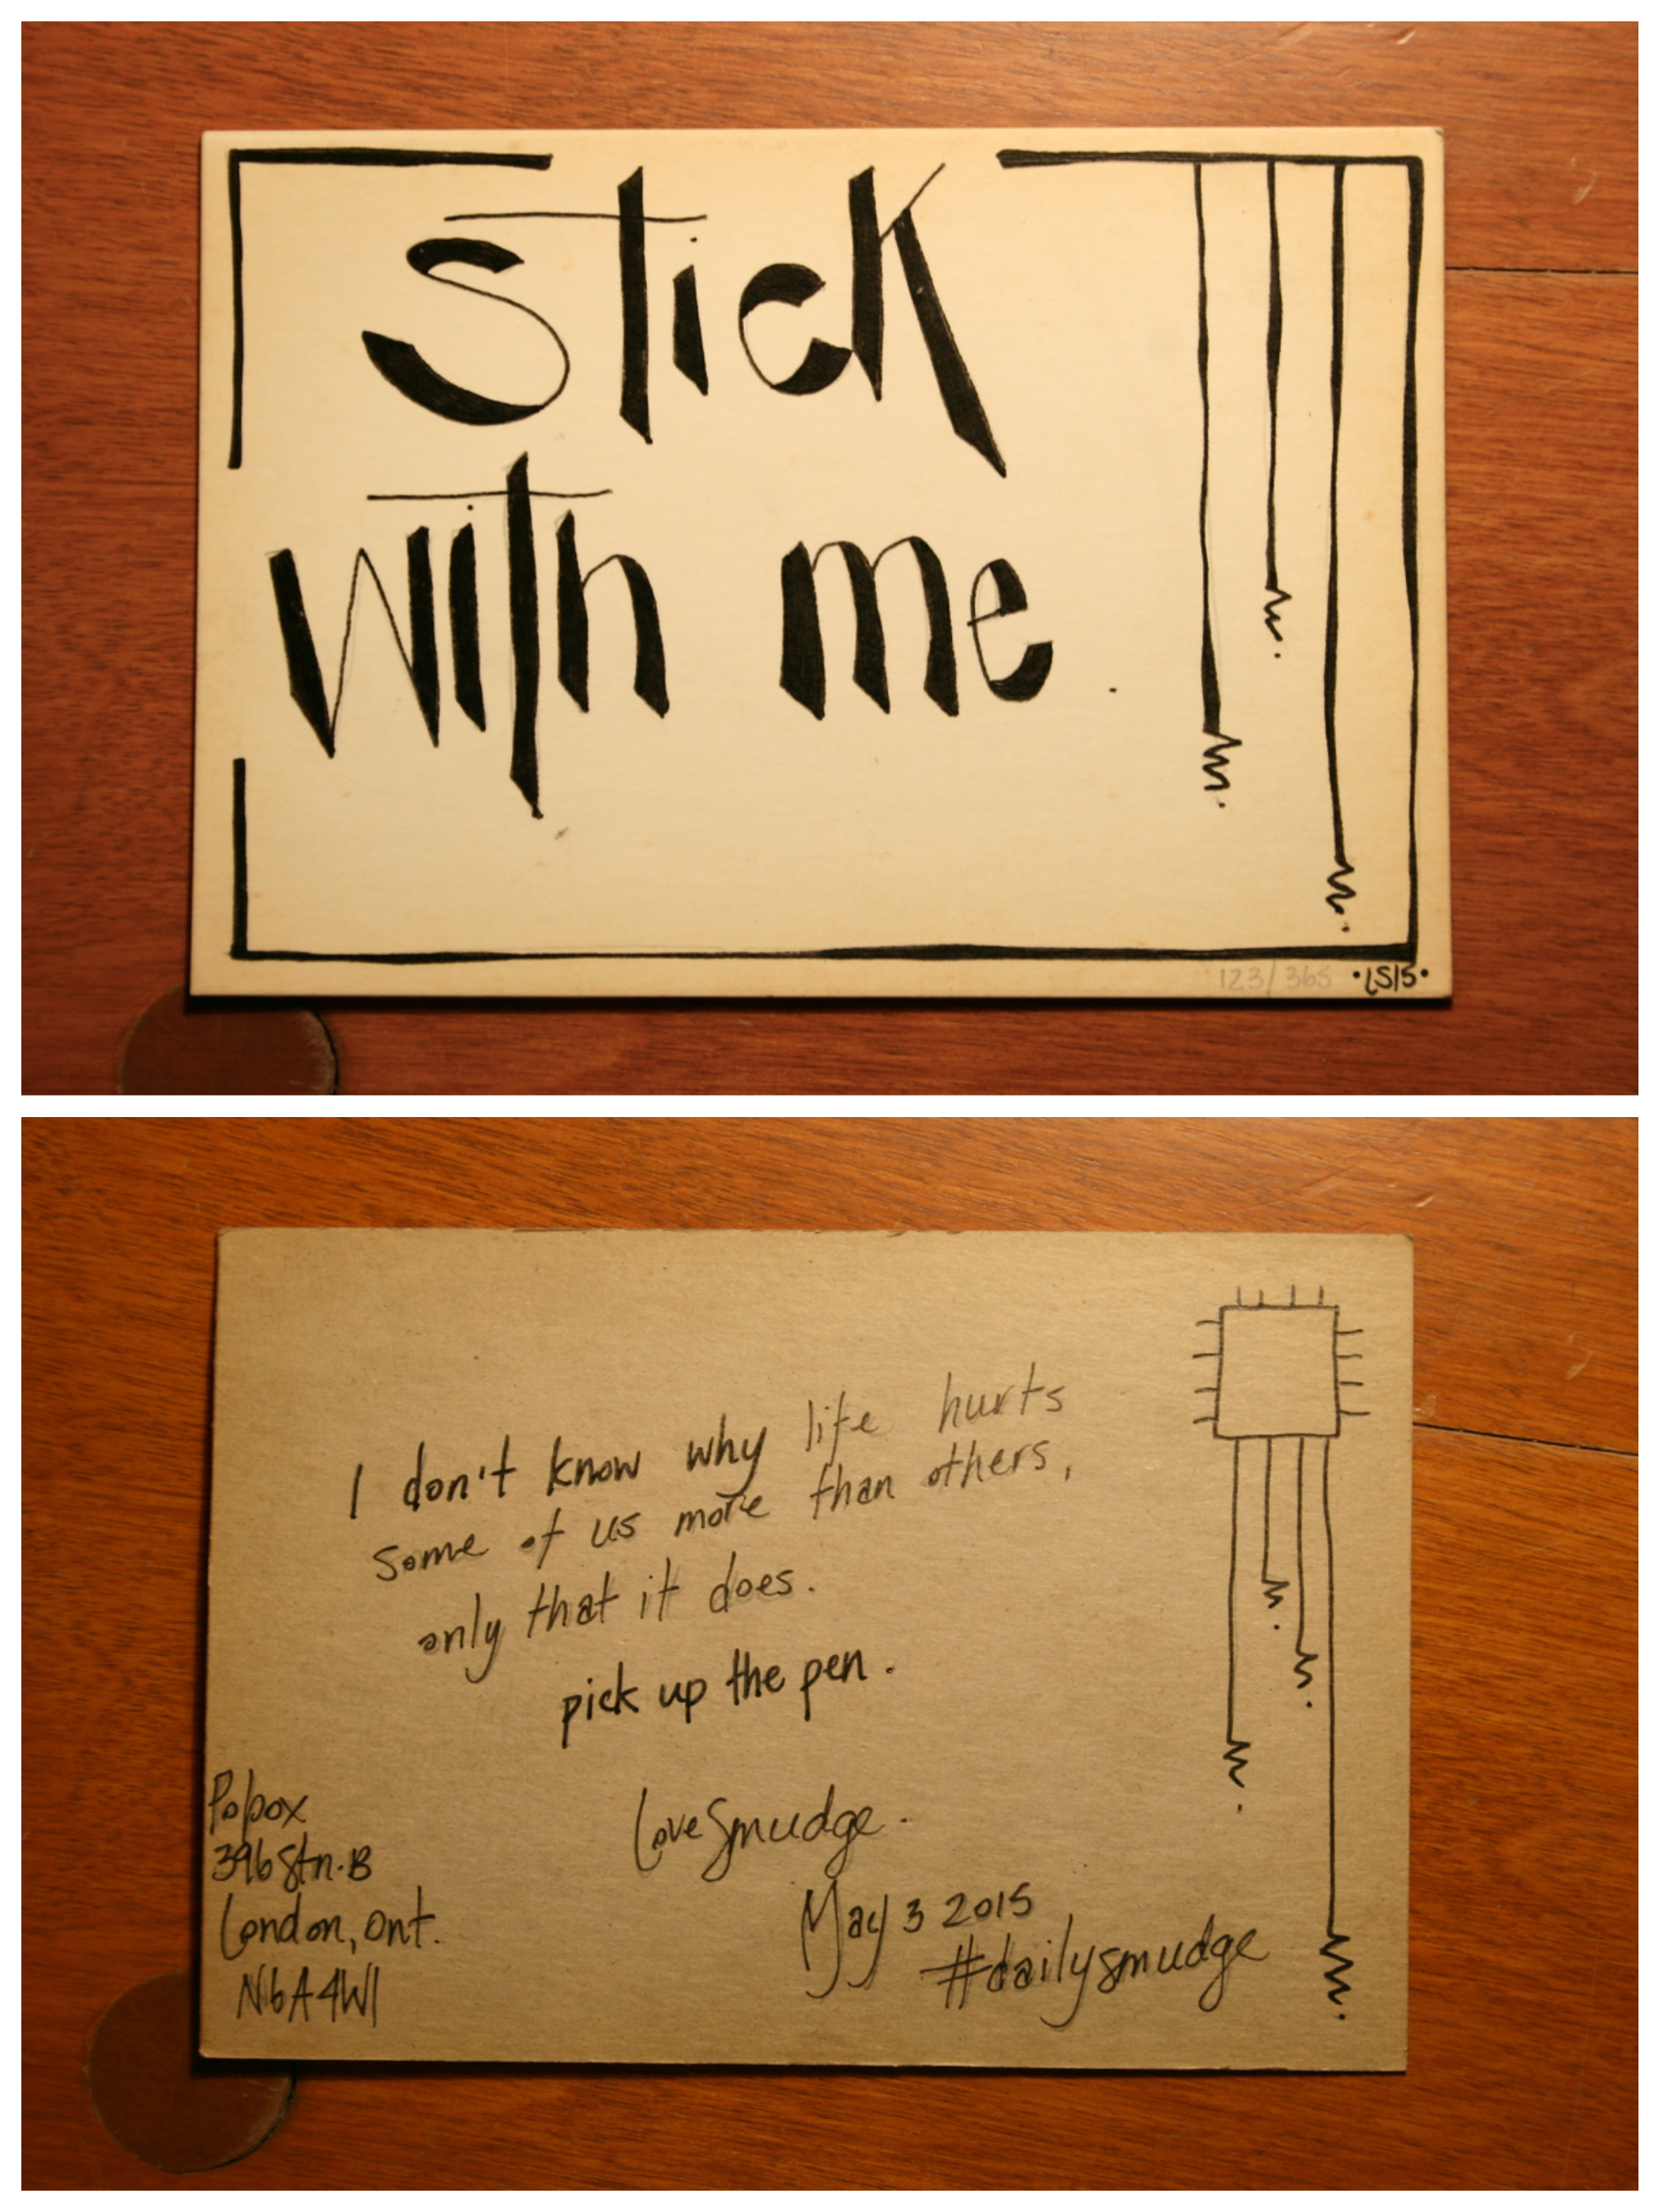 stick
with me.
123/365 •LS15•
I don't know why life hurts
some of us more than others,
only that it does.
pick up the pen.
Love Smudge.
May 3 2015
#dailysmudge
Pobox
396 Stn. B
London, Ont.
N6A4W1